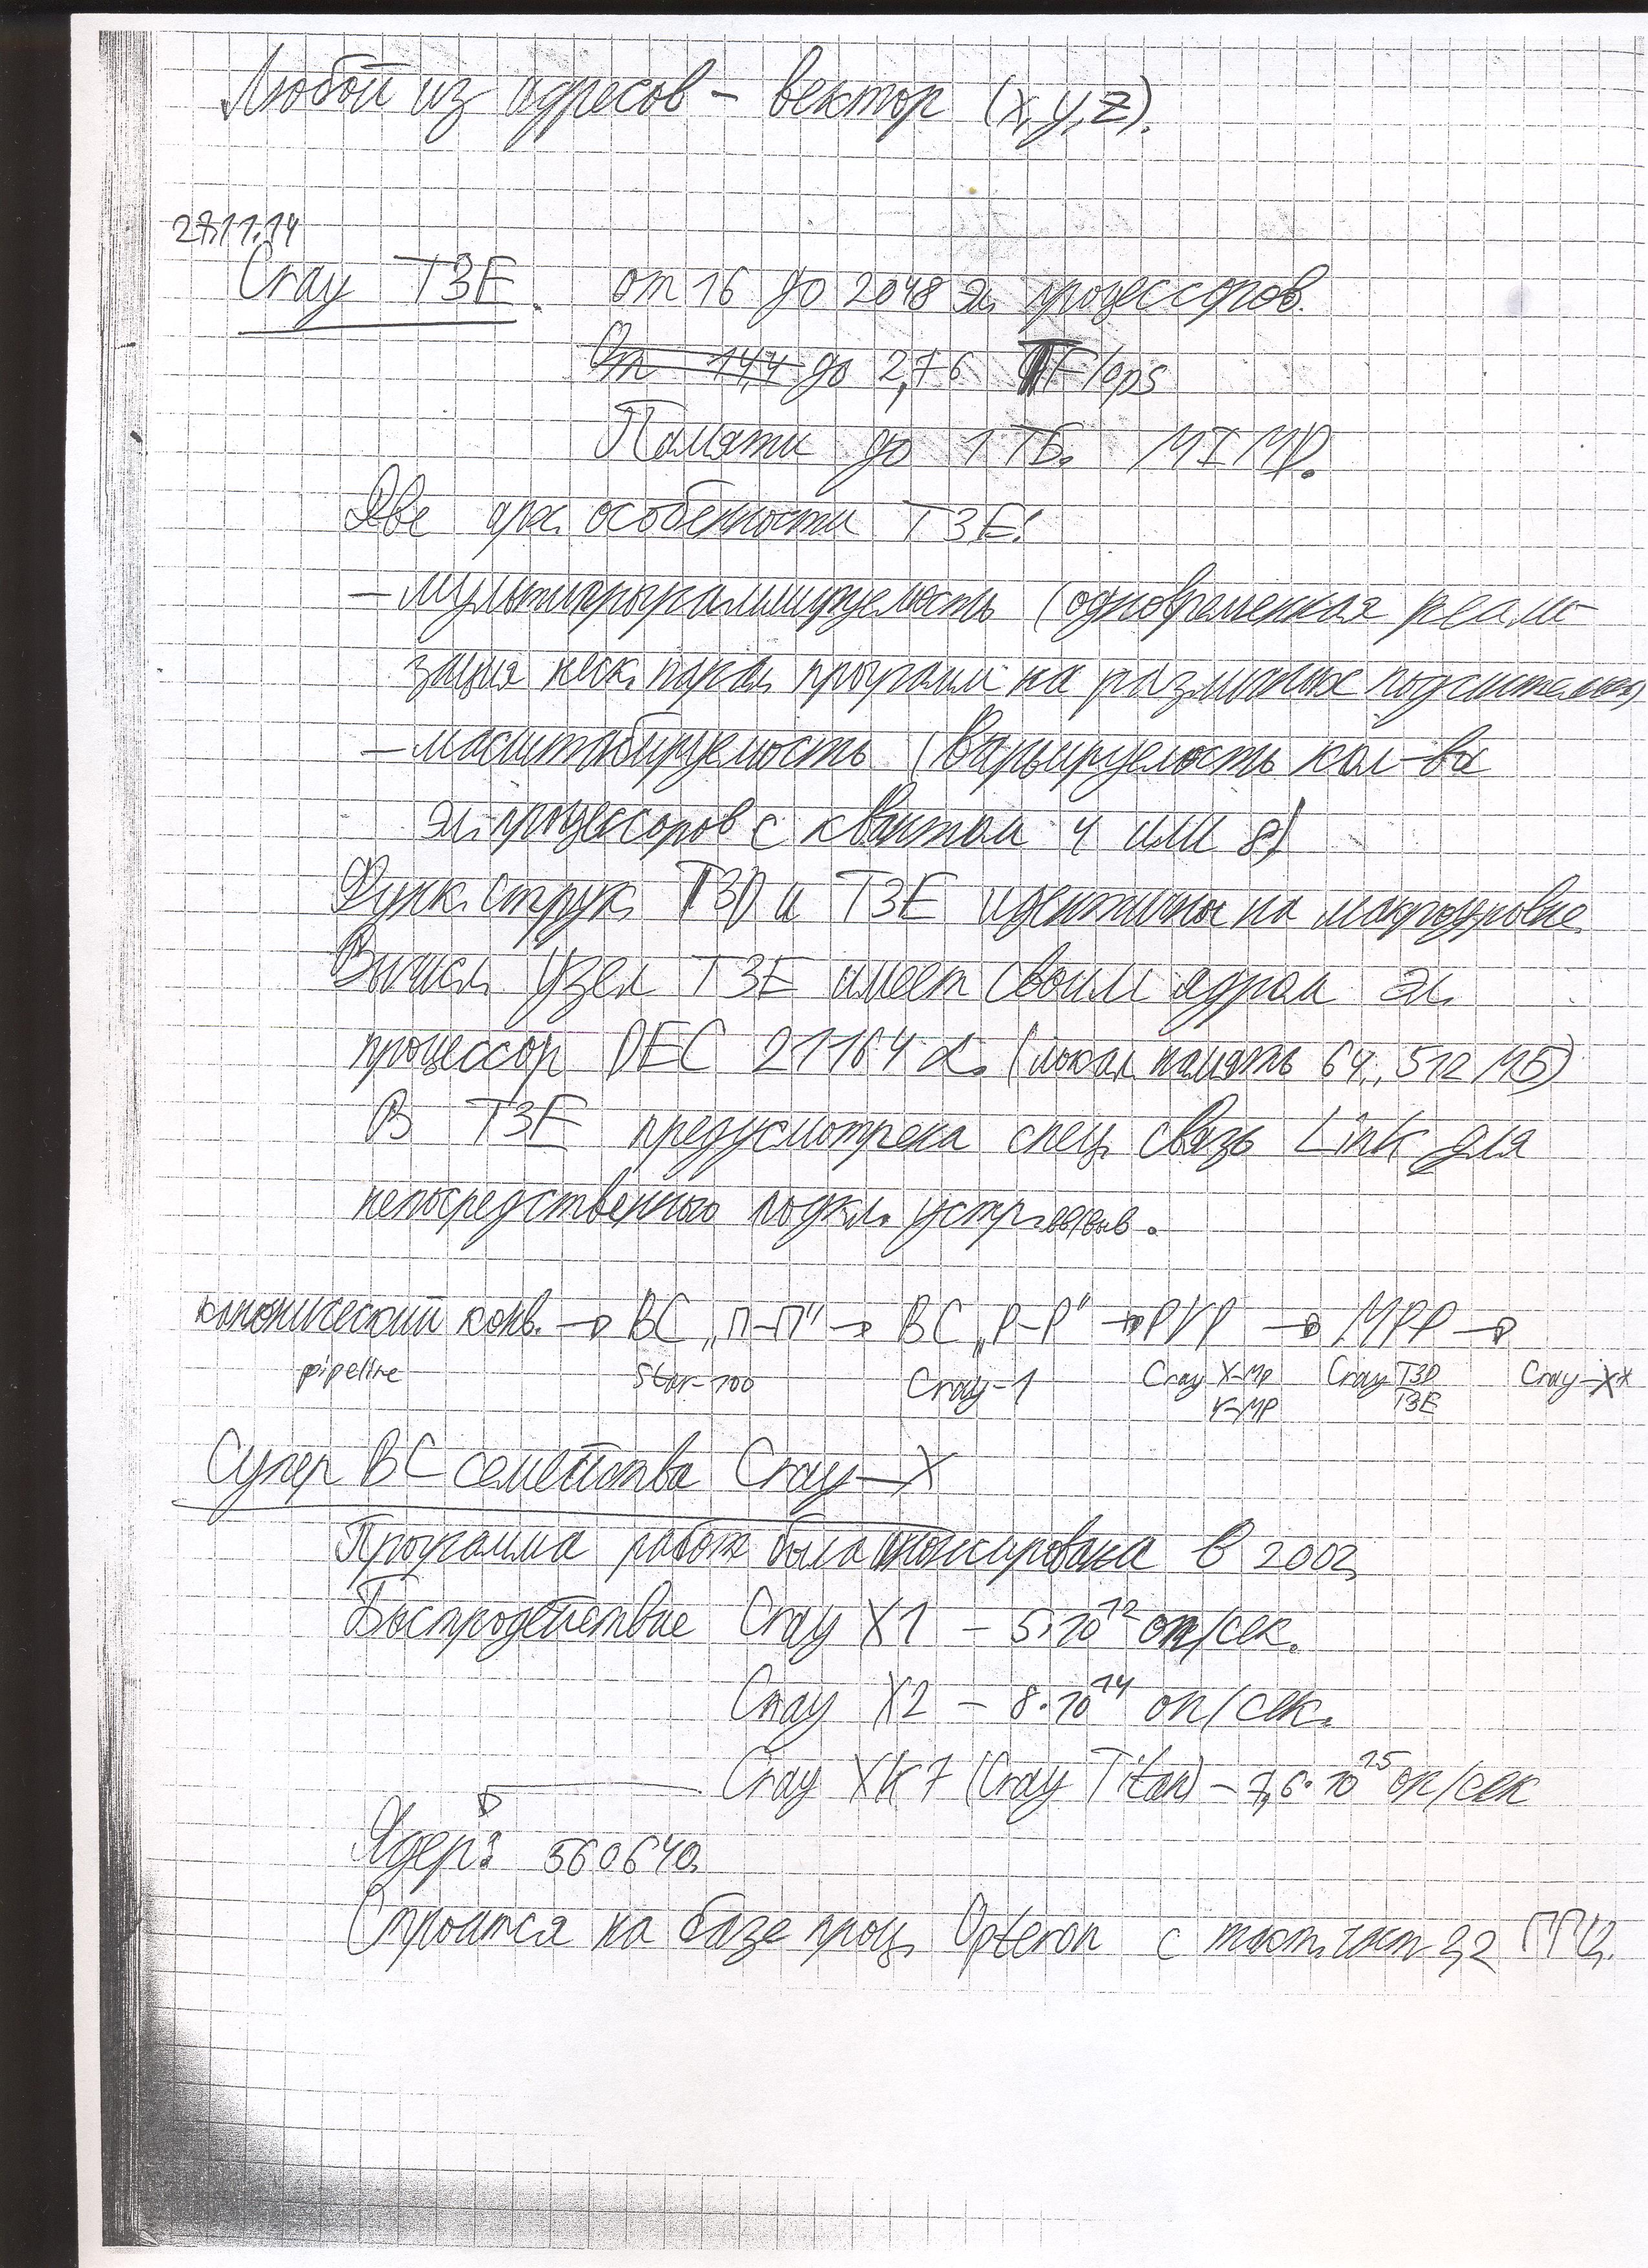 Любой из адресов – вектор (x,y,z).
27.11.14
Cray T3E. от 16 до 2048 эл. процессоров.
От 14,4 до 2,76 TFlops
Памяти до 1 ТБ. MIMD.
Две арх. особенности T3E:
– мультипрограммируемость (одновременная реали-
зация неск. парал. программ на различных подсистемах)
– масштабируемость (варьируемость кол-ва
эл. процессоров с квантом 4 или 8)
Функ. струк. T3D и T3E идентичны на макроуровне.
Вычисл. узел T3E имеет своим ядром эл.
процессор DEC 21164 α. (локал. память 64..512 МБ)
В T3E предусмотрена спец. связь Link для
непосредственного подкл. устр. вв/выв.
канонический конв. → ВС „П-П“ → ВС „Р-Р“ → PVP → MPP →
pipeline Star-100 Cray-1 Cray X-MP Cray T3D Cray-X*
Y-MP T3E
Супер ВС семейства Cray-X
Программа работ была анонсирована в 2002
Быстродействие Cray X1 – 5·10¹² оп/сек.
Cray X2 – 8·10¹⁴ оп/сек.
Cray XK7 (Cray Titan) – 7,6·10¹⁵ оп/сек
Ядер: 560640.
Строится на базе проц. Opteron с такт. част. 2,2 ГГц.